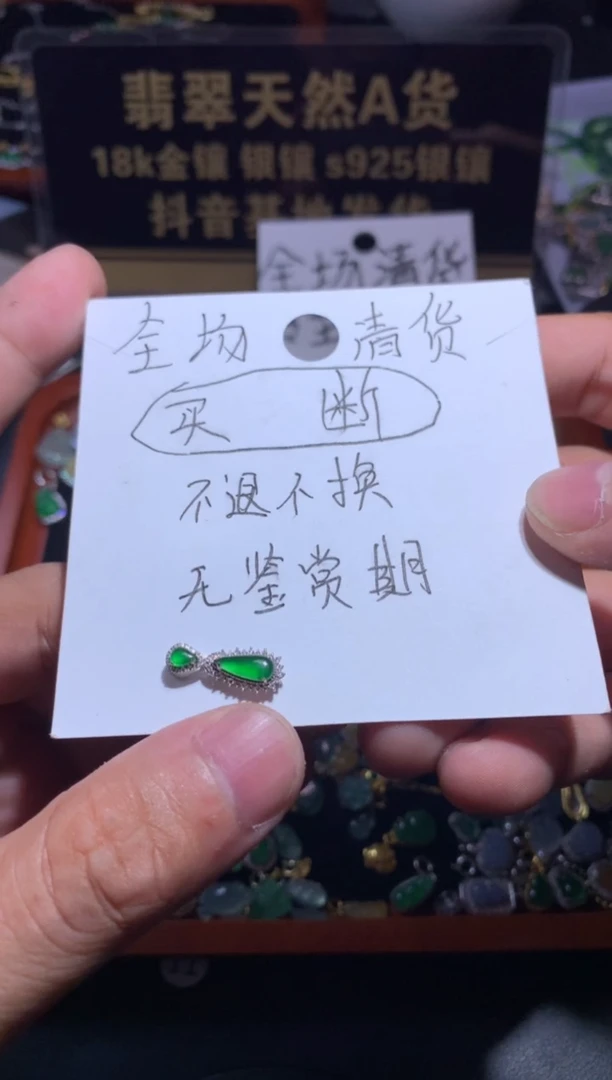 翡翠天然A货
18k金镶 银镶 s925银镶
抖音基地发货
全场清货
全场 清货
买 断
不退不换
无鉴赏期